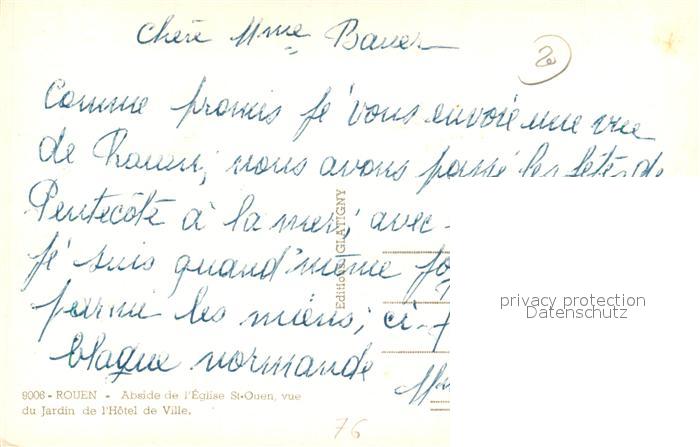 Chère Mme Bauer
20
Comme promis je vous envoie une vue
de Rouen, nous avons passé les fêtes de
Pentecôte à la mer, avec
je suis quand même
parmi les miens; ci-
blaque normande
Editions GLATIGNY
privacy protection
Datenschutz
9006 - ROUEN - Abside de l'Église St-Ouen, vue
du Jardin de l'Hôtel de Ville.
76